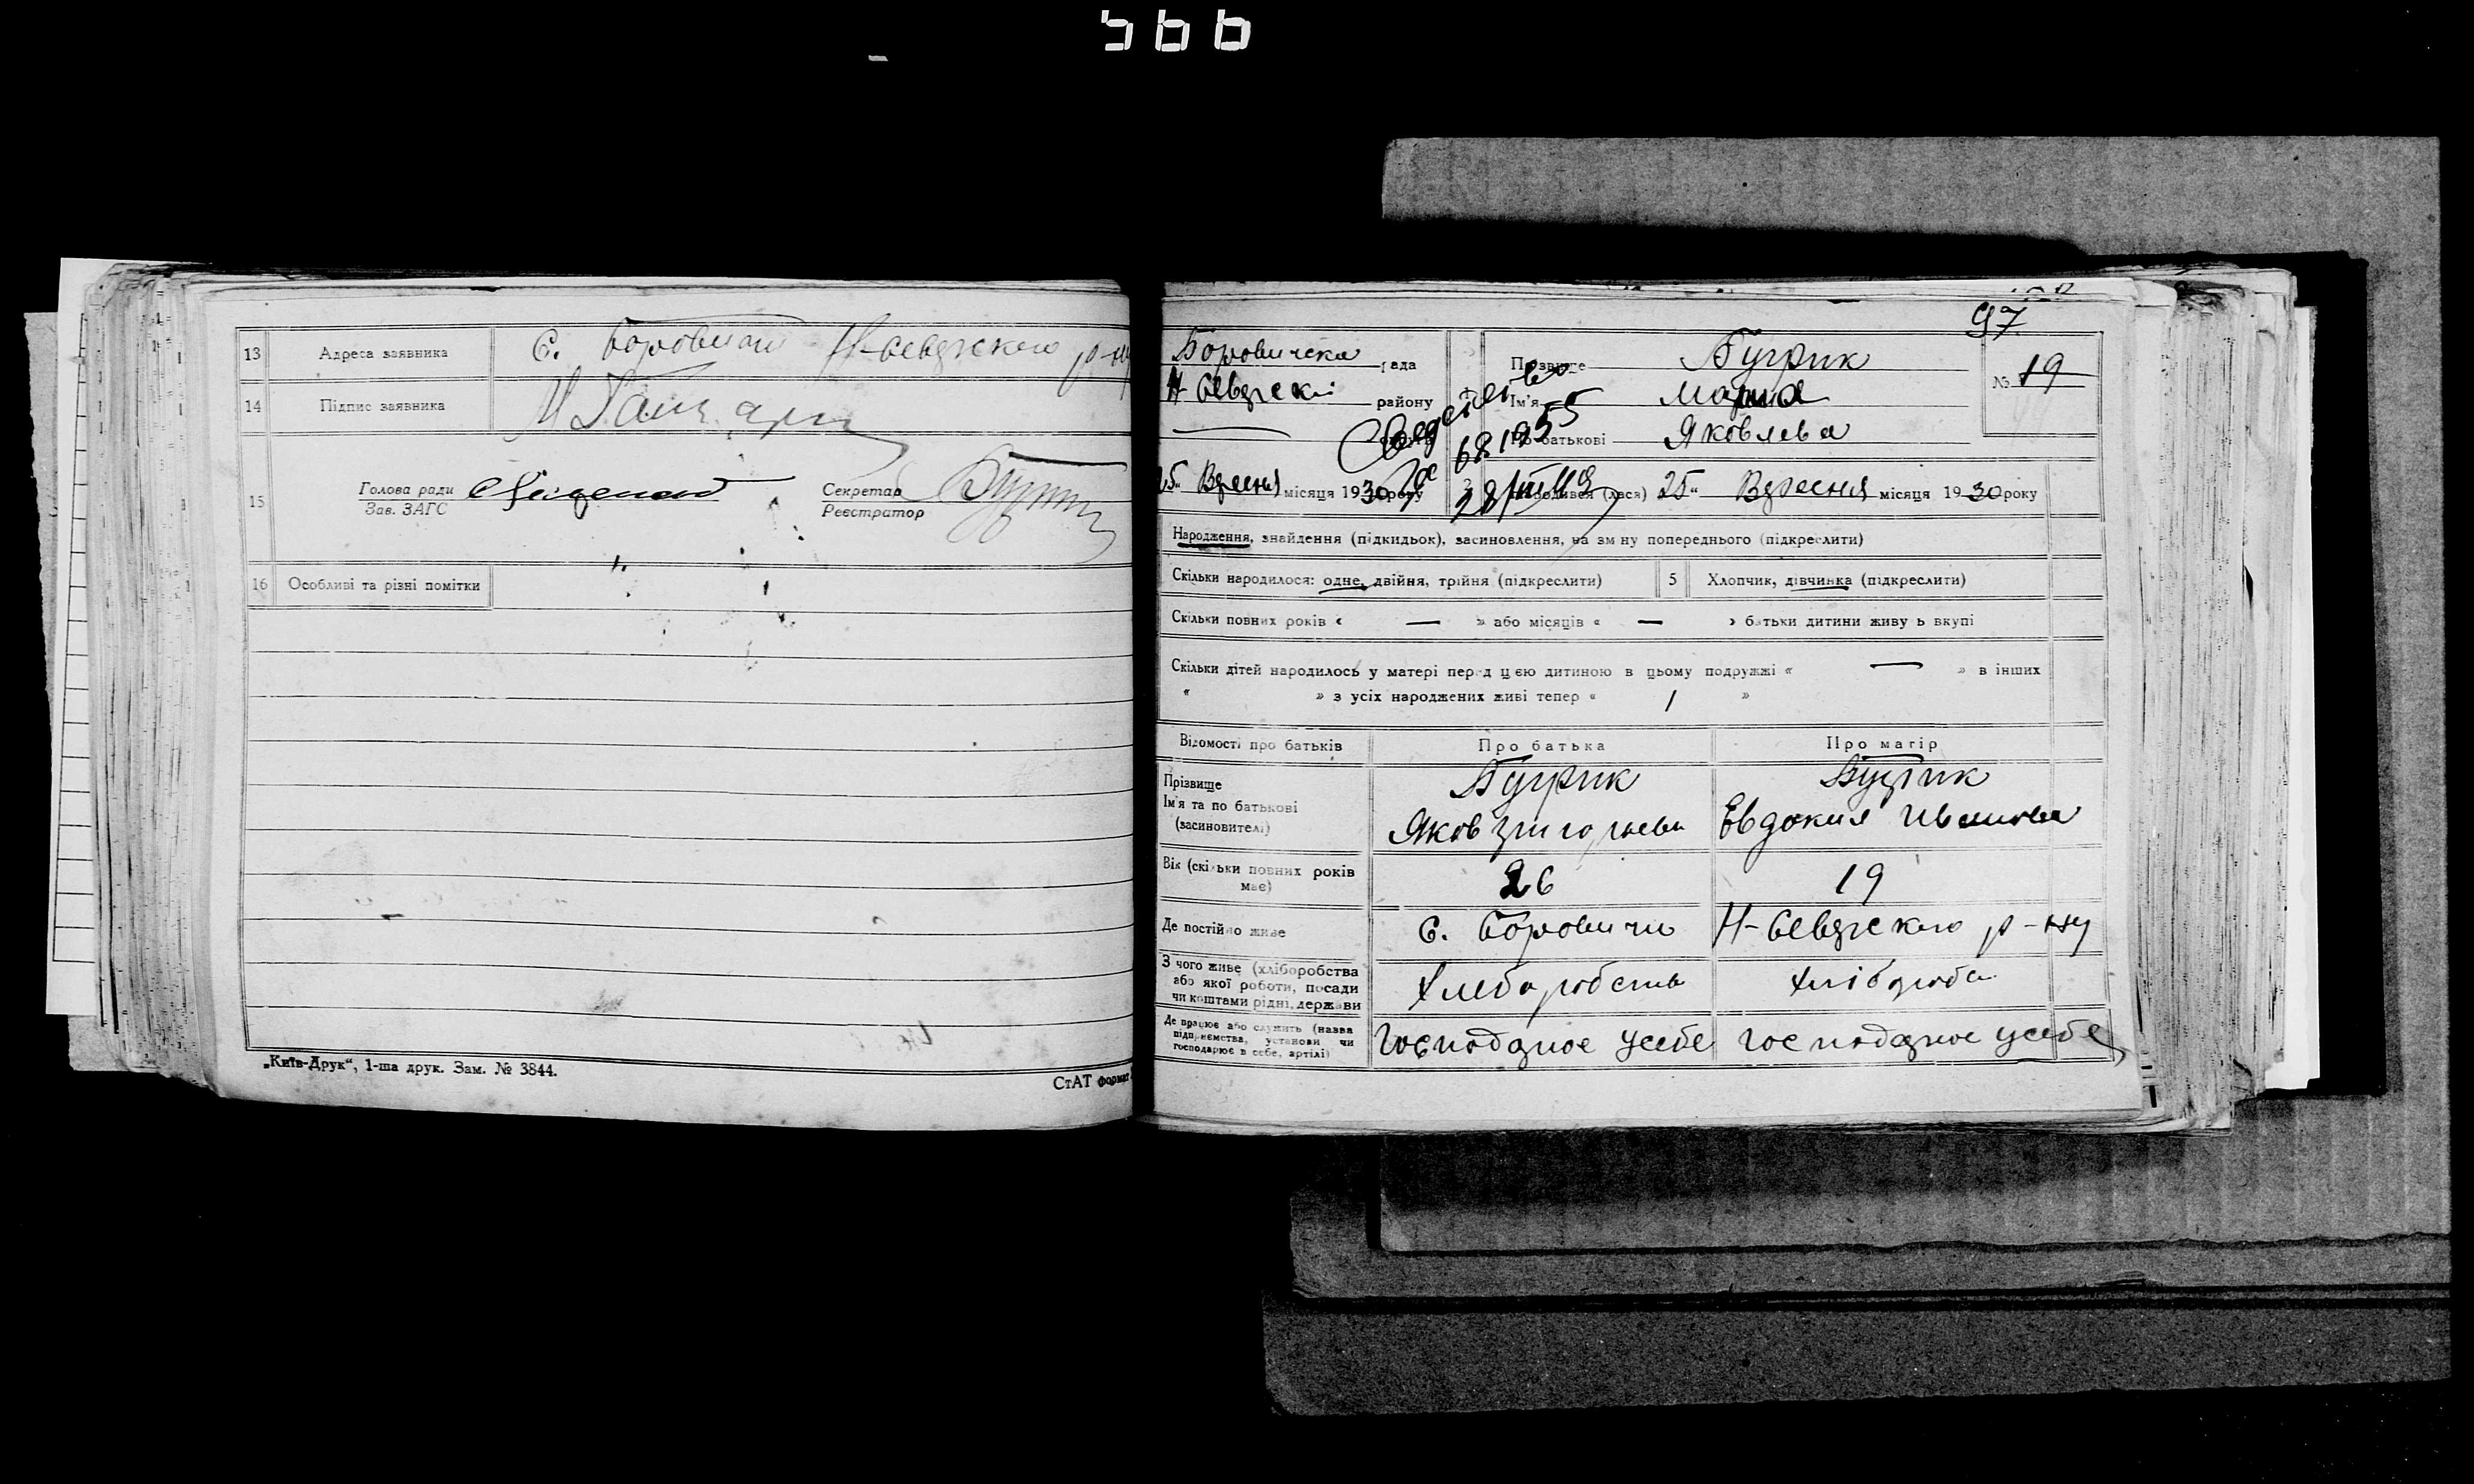 566
13 Адреса заявника с. Боровичи Н-Сіверского р-ну
14 Підпис заявника
15 Голова ради
Зав. ЗАГС
Секретар
Реєстратор
16 Особливі та різні помітки
„Київ-Друк“, 1-ша друк. Зам. № 3844.
СтАТ формат
97
Боровичска рада
Н-Сіверскі району
25" Вересня місяця 1930 року
Прізвище Бугрик
№ 19
Ім'я Мария
По батькові Яковлева
народився (лася) 25" Вересня місяця 1930 року
Народження, знайдення (підкидьок), засиновлення, на зміну попереднього (підкреслити)
Скільки народилося: одне, двійня, трійня (підкреслити) 5 Хлопчик, дівчинка (підкреслити)
Скільки повних років « — » або місяців « — » батьки дитини живуть вкупі
Скільки дітей народилось у матері перед цією дитиною в цьому подружжі « — » в інших
« » з усіх народжених живі тепер « 1 »
Відомості про батьків Про батька Про матір
Прізвище Бугрик Бугрик
Ім'я та по батькові
(засиновителі) Яков Григорьев Евдокия Иванова
Вік (скільки повних років має) 26 19
Де постійно живе с. Боровичи Н-Сіверского р-ну
З чого живе (хліборобства
або якої роботи, посади
чи коштами рідні, держави Хлеборобств Хлібороба
Де працює або служить (назва
підприємства, установи чи
господарює в себе, артілі)